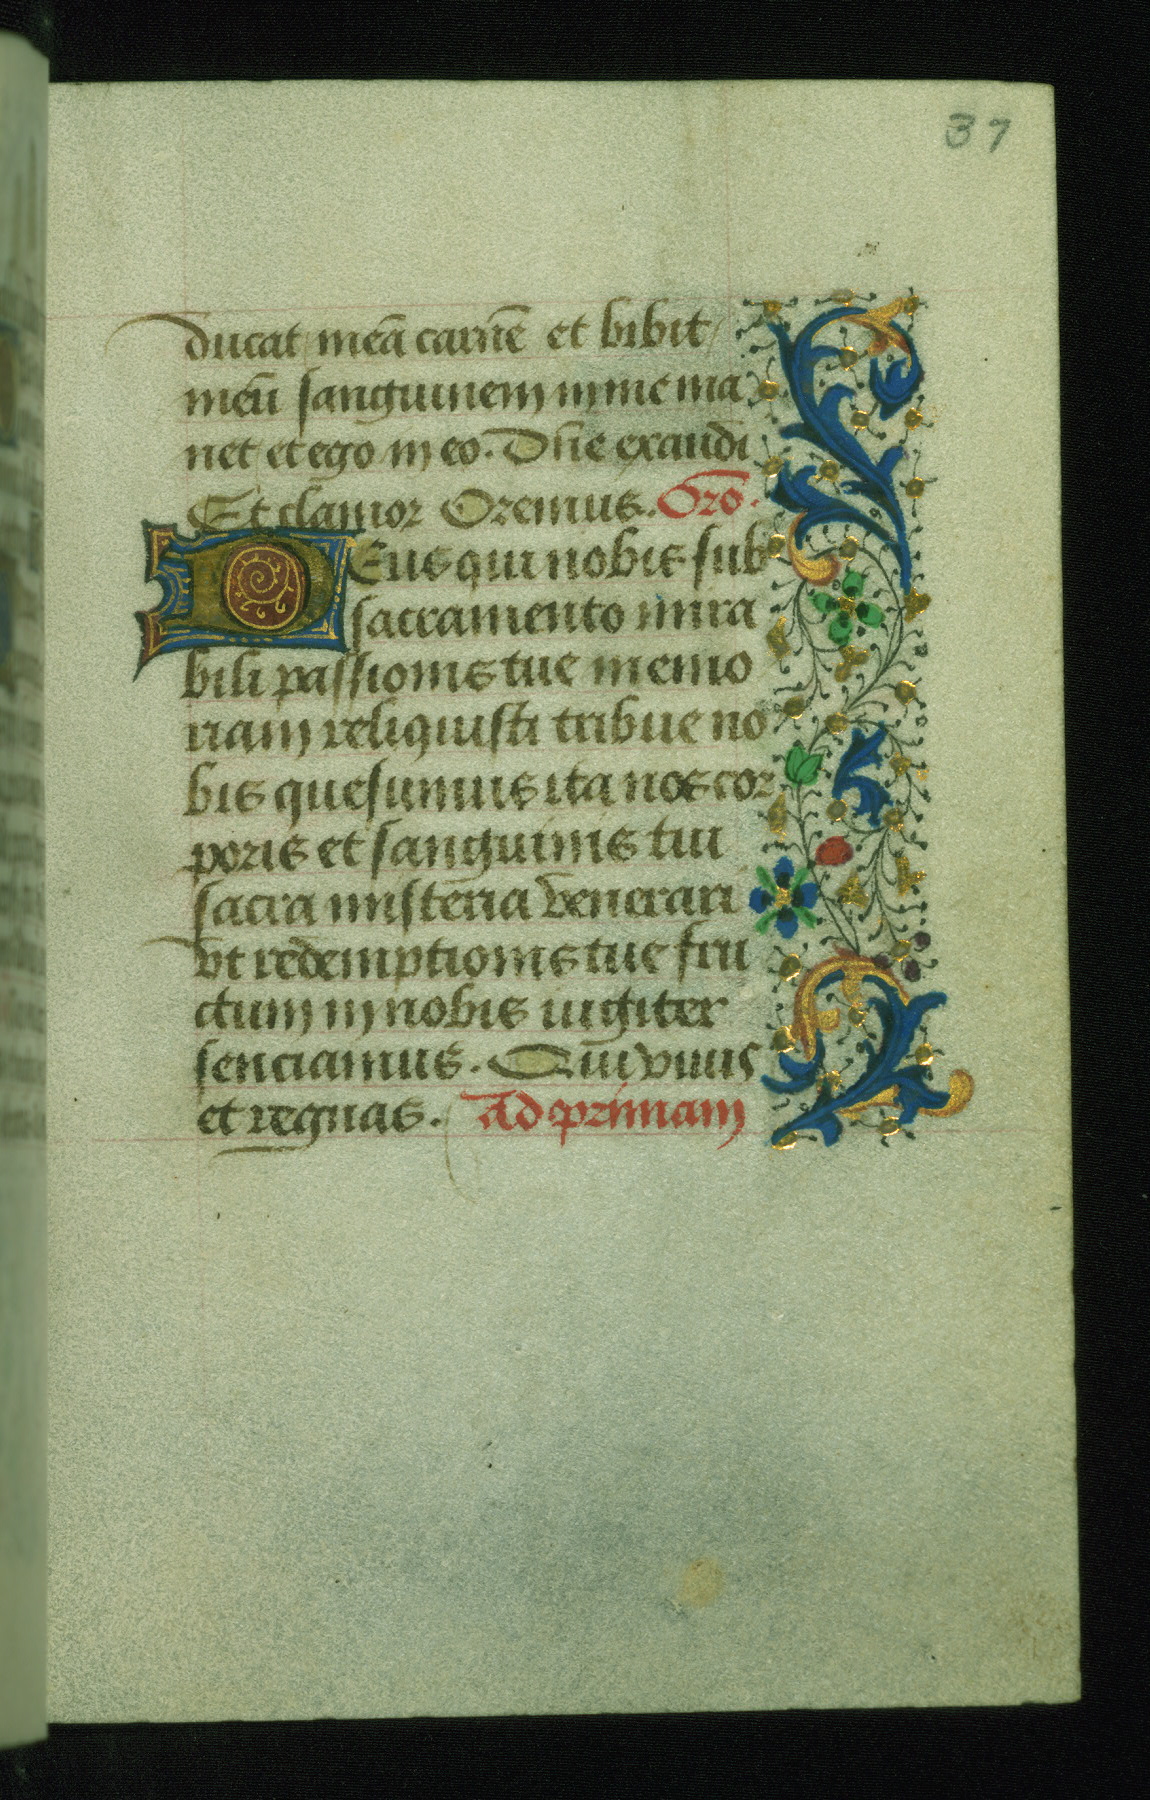 37
ducat meā carnē et bibit
meū sanguinem in me ma
net et ego in eo. Dn̄e exaudi
Et clamor Oremus. Orō.
Deus qui nobis sub
sacramento mira
bili passionis tue memo
riam reliquisti tribue no
bis quesumus ita nos cor
poris et sanguinis tui
sacra misteria venerari
vt redemptionis tue fru
ctum in nobis iugiter
senciamus. Qui viuis
et regnas. Ad primam